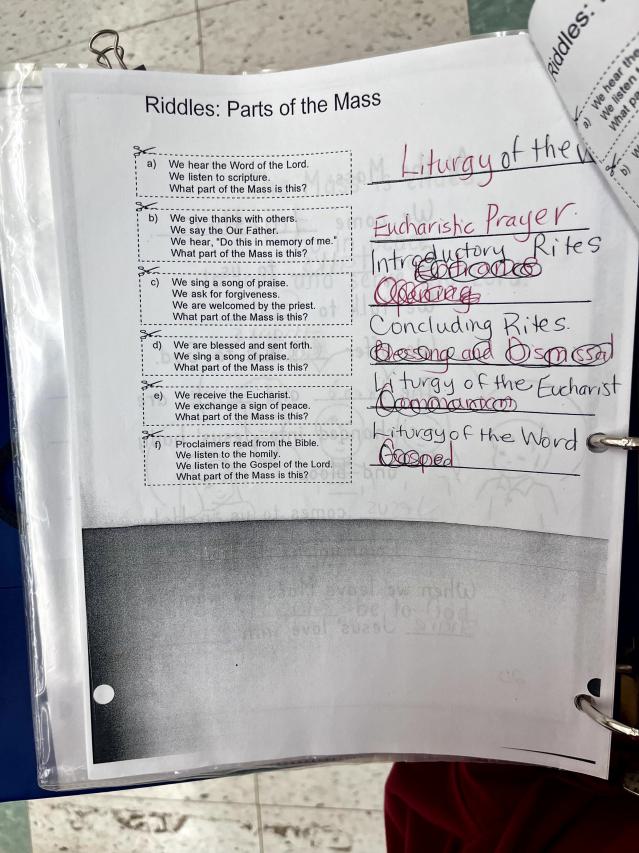 Riddles: Parts of the Mass
a) We hear the Word of the Lord.
We listen to scripture.
What part of the Mass is this?
Liturgy of the W
b) We give thanks with others.
We say the Our Father.
We hear, "Do this in memory of me."
What part of the Mass is this?
Eucharistic Prayer.
c) We sing a song of praise.
We ask for forgiveness.
We are welcomed by the priest.
What part of the Mass is this?
Introductory Rites
Opening
d) We are blessed and sent forth.
We sing a song of praise.
What part of the Mass is this?
Concluding Rites.
Blessing and Dismissal
e) We receive the Eucharist.
We exchange a sign of peace.
What part of the Mass is this?
Liturgy of the Eucharist
Communion
f) Proclaimers read from the Bible.
We listen to the homily.
We listen to the Gospel of the Lord.
What part of the Mass is this?
Liturgy of the Word
Gosped
Riddles:
a) We hear the
We listen
What pa
b) W